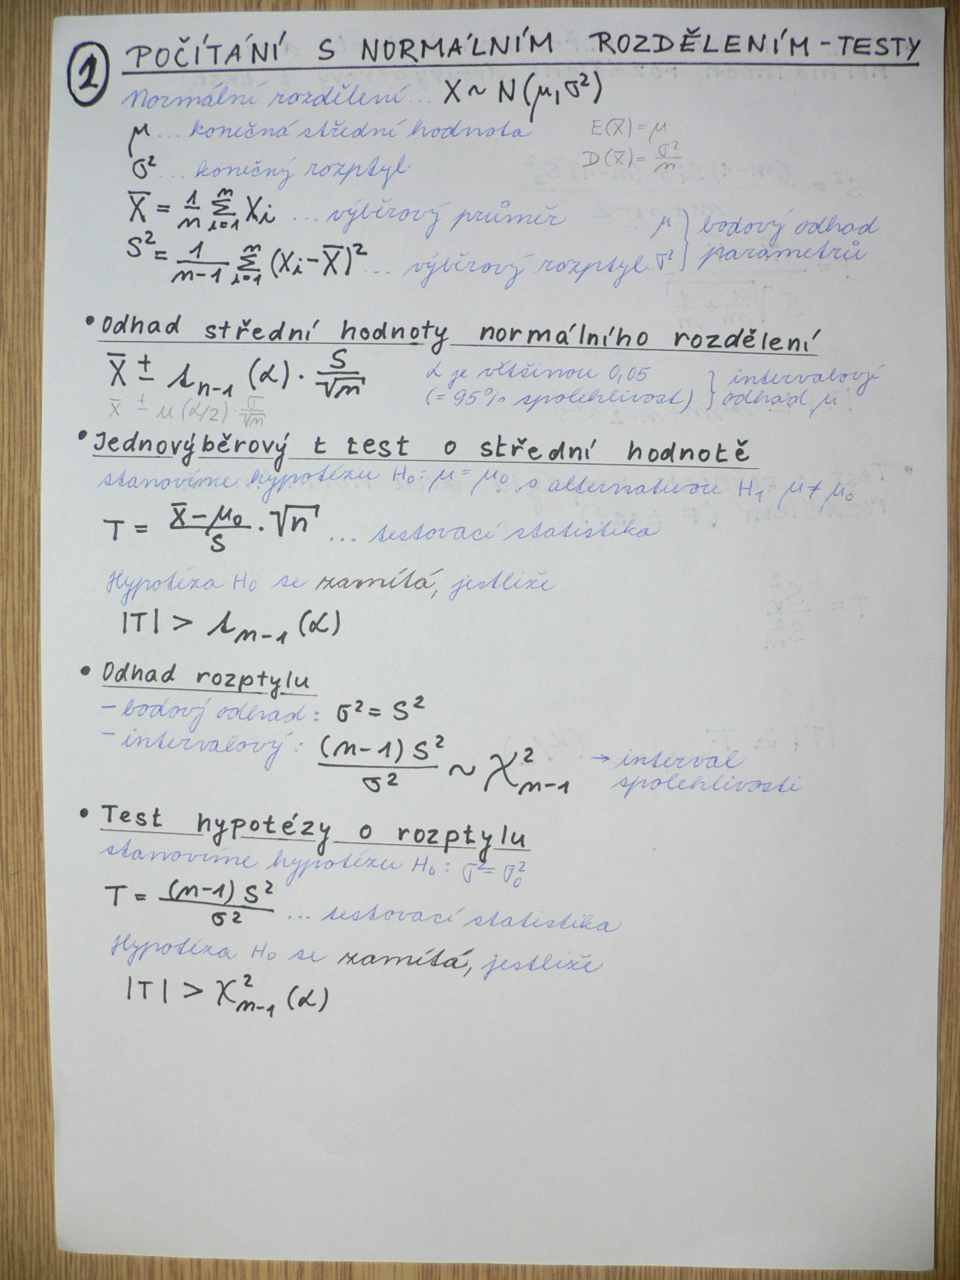 1 POČÍTÁNÍ S NORMÁLNÍM ROZDĚLENÍM - TESTY
Normální rozdělení... X ~ N(μ, σ²)
μ ... konečná střední hodnota E(X̄) = μ
σ² ... konečný rozptyl D(X̄) = σ²/n
X̄ = 1/n Σ_{i=1}^{n} Xi ... výběrový průměr μ } bodový odhad
S² = 1/(n-1) Σ_{i=1}^{n} (Xi - X̄)² ... výběrový rozptyl σ² } parametrů
• Odhad střední hodnoty normálního rozdělení
X̄ ± t_{n-1} (α) · S/√n α je většinou 0,05 } intervalový
X̄ ± μ(α/2) · σ/√n (= 95% spolehlivost) } odhad μ
• Jednovýběrový t test o střední hodnotě
stanovíme hypotézu H₀: μ = μ₀ s alternativou H₁: μ ≠ μ₀
T = (X̄ - μ₀)/S · √n ... testovací statistika
Hypotéza H₀ se zamítá, jestliže
|T| > t_{n-1} (α)
• Odhad rozptylu
- bodový odhad: σ² = S²
- intervalový: (n-1) S²/σ² ~ χ²_{n-1} → interval
spolehlivosti
• Test hypotézy o rozptylu
stanovíme hypotézu H₀: σ² = σ₀²
T = (n-1) S²/σ² ... testovací statistika
Hypotéza H₀ se zamítá, jestliže
|T| > χ²_{n-1} (α)